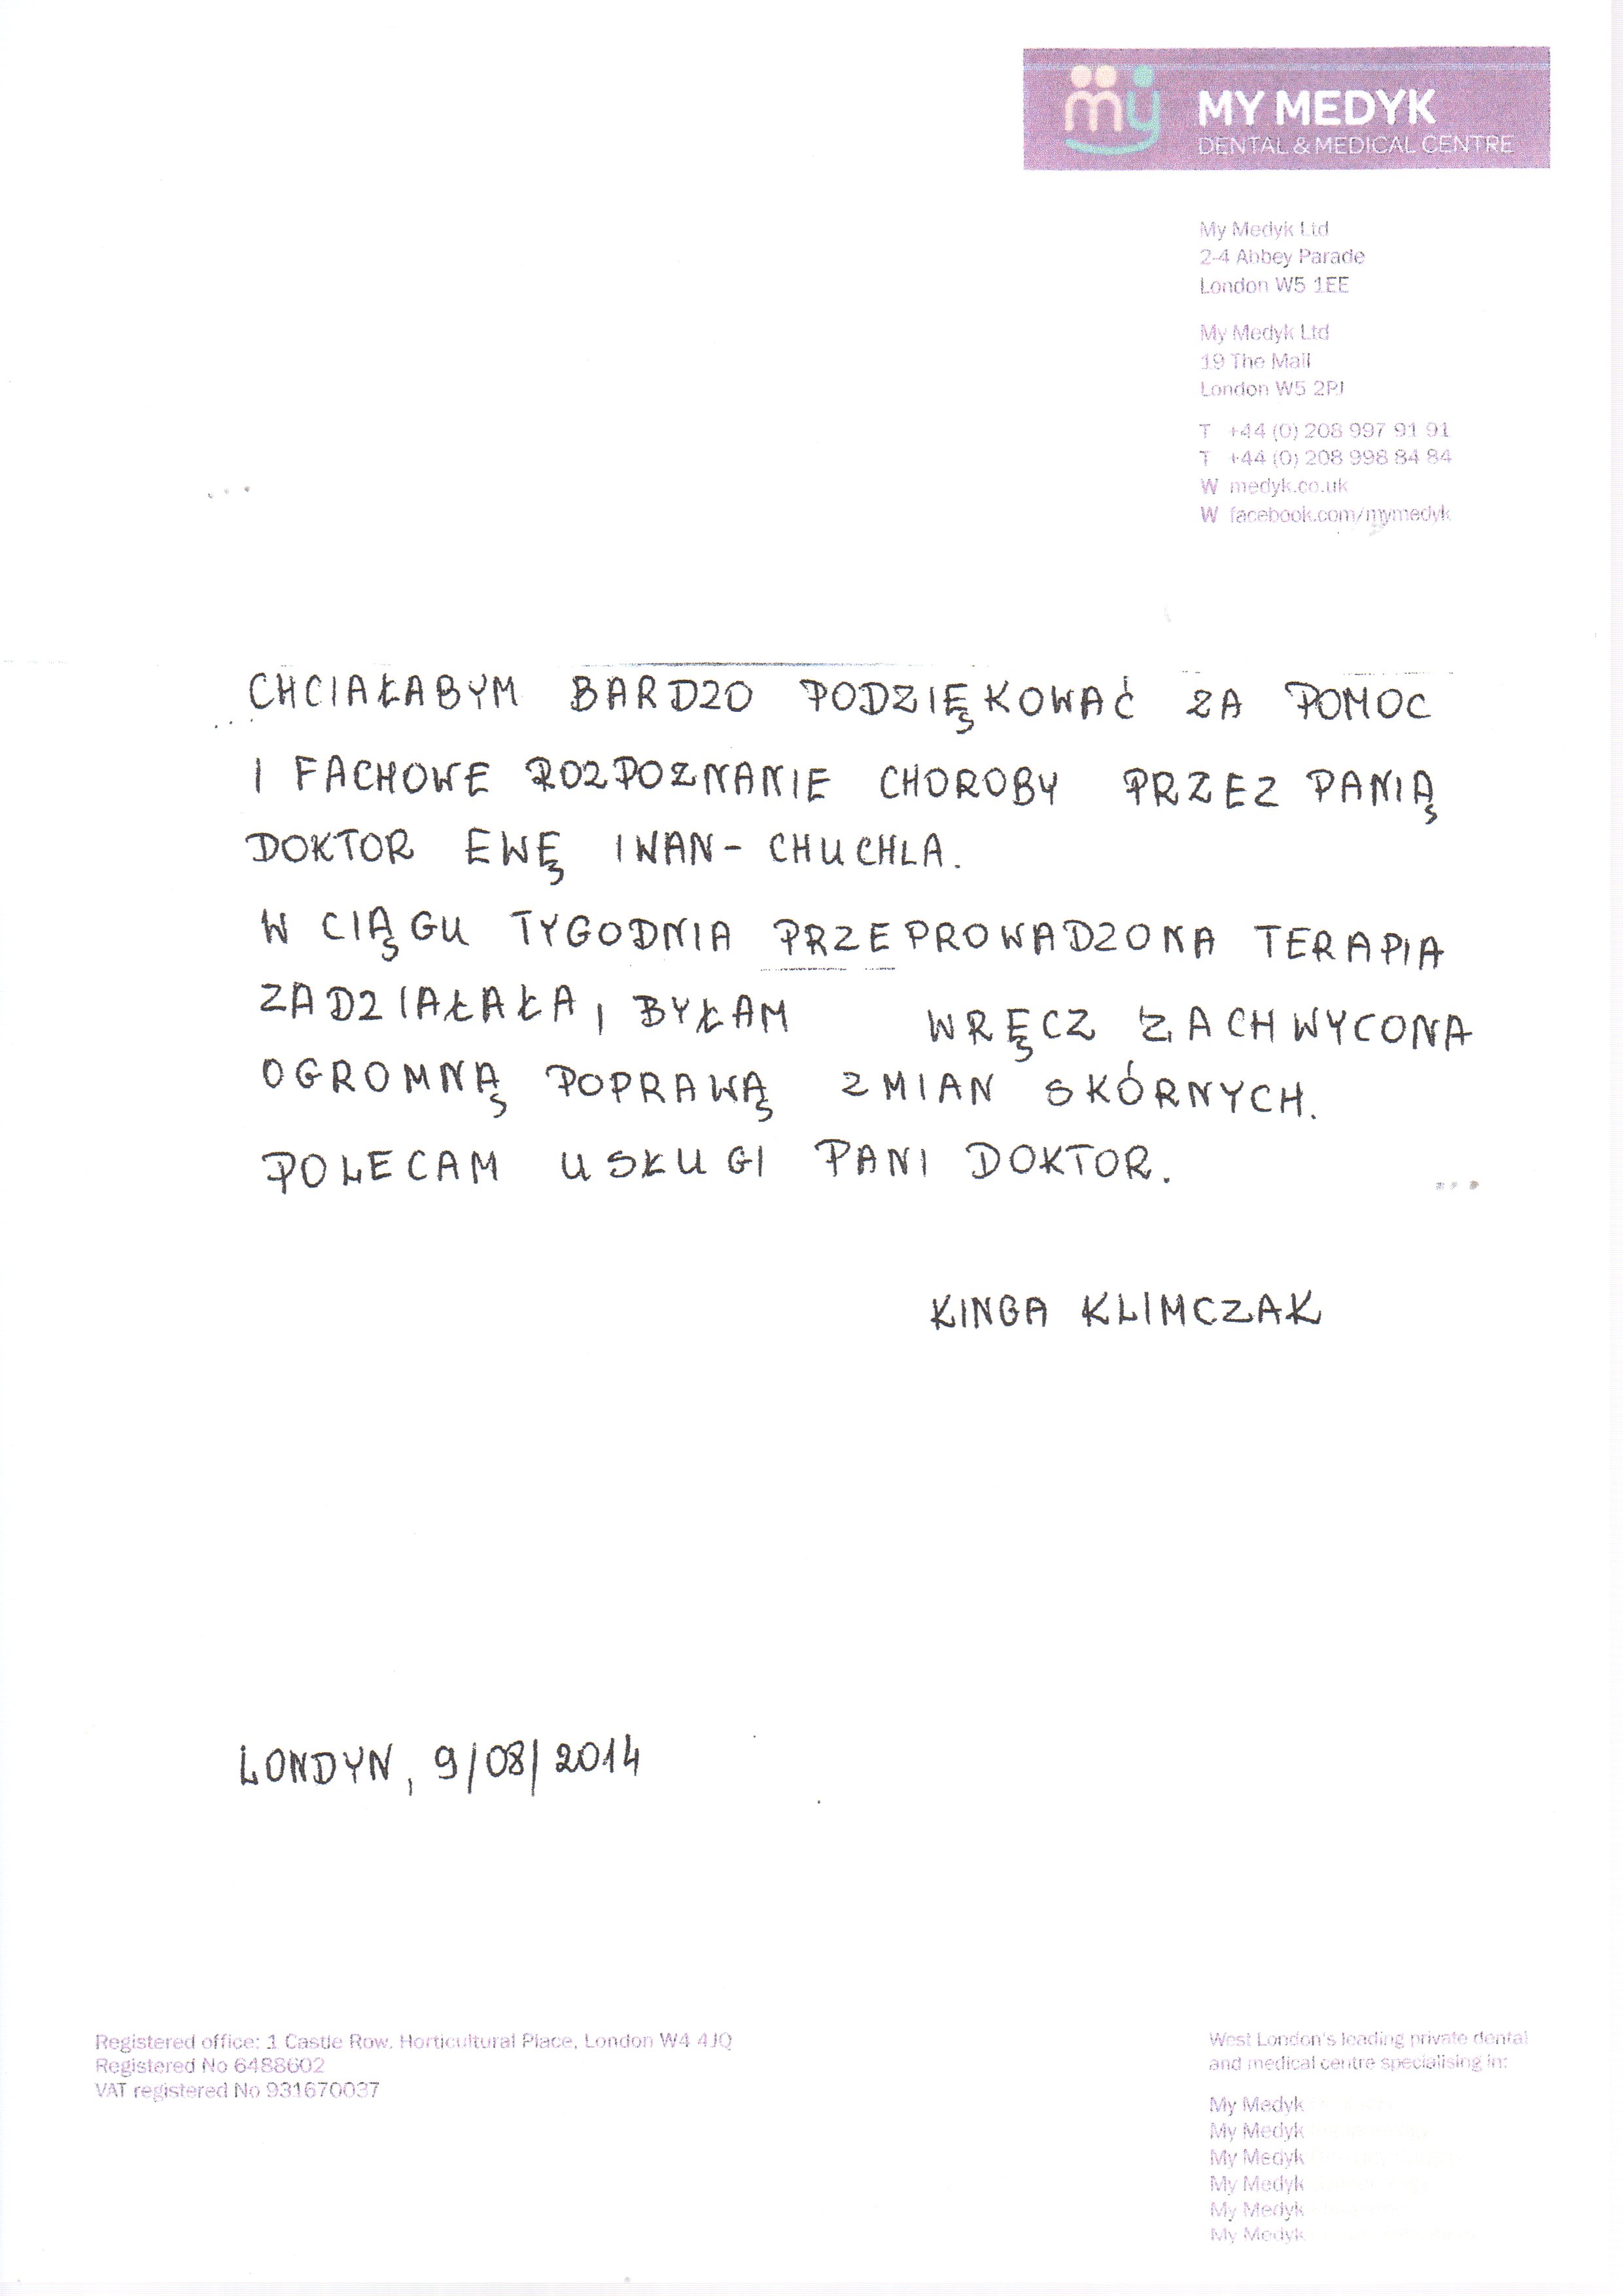 my MY MEDYK
DENTAL & MEDICAL CENTRE
My Medyk Ltd
2-4 Abbey Parade
London W5 1EE
My Medyk Ltd
19 The Mall
London W5 2PJ
T +44 (0) 208 997 91 91
T +44 (0) 208 998 84 84
W medyk.co.uk
W facebook.com/mymedyk
CHCIAŁABYM BARDZO PODZIĘKOWAĆ ZA POMOC
I FACHOWE ROZPOZNANIE CHOROBY PRZEZ PANIĄ
DOKTOR EWĘ IWAN-CHUCHLA.
W CIĄGU TYGODNIA PRZEPROWADZONA TERAPIA
ZADZIAŁAŁA, BYŁAM WRĘCZ ZACHWYCONA
OGROMNĄ POPRAWĄ ZMIAN SKÓRNYCH.
POLECAM USŁUGI PANI DOKTOR.
KINGA KLIMCZAK
LONDYN, 9/08/2014
Registered office: 1 Castle Row, Horticultural Place, London W4 4JQ
Registered No 6488602
VAT registered No 931670037
West London's leading private dental
and medical centre specialising in:
My Medyk
My Medyk
My Medyk
My Medyk
My Medyk
My Medyk